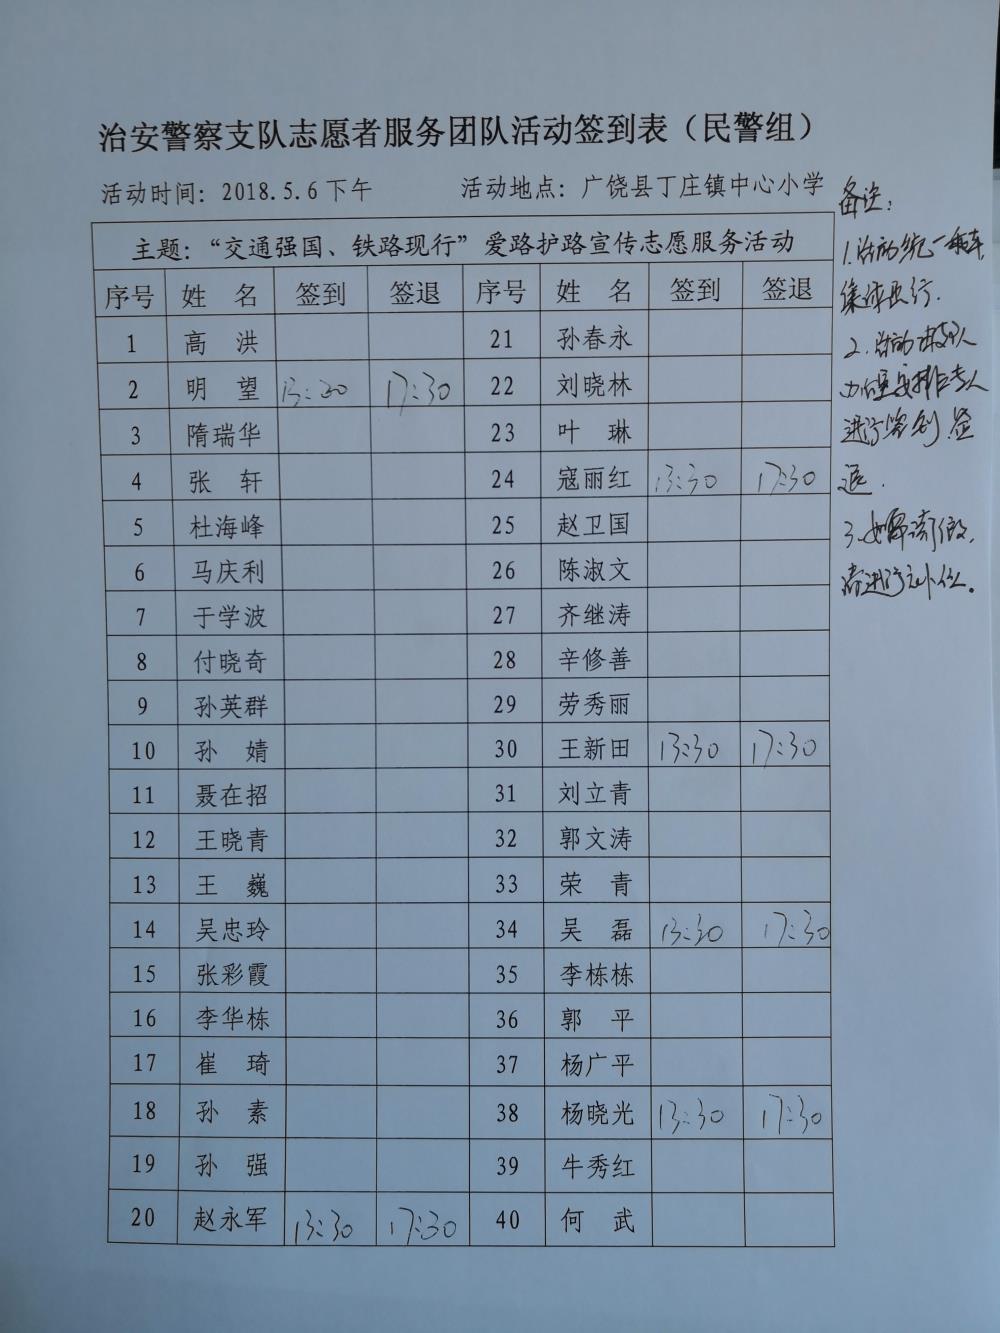 治安警察支队志愿者服务团队活动签到表（民警组）
活动时间：2018.5.6下午 活动地点：广饶县丁庄镇中心小学
主题：“交通强国、铁路现行”爱路护路宣传志愿服务活动
序号 姓 名 签到 签退 序号 姓 名 签到 签退
1 高 洪 21 孙春永
2 明 望 13:30 17:30 22 刘晓林
3 隋瑞华 23 叶 琳
4 张 轩 24 寇丽红 13:30 17:30
5 杜海峰 25 赵卫国
6 马庆利 26 陈淑文
7 于学波 27 齐继涛
8 付晓奇 28 辛修善
9 孙英群 29 劳秀丽
10 孙 婧 30 王新田 13:30 17:30
11 聂在招 31 刘立青
12 王晓青 32 郭文涛
13 王 巍 33 荣 青
14 吴忠玲 34 吴 磊 13:30 17:30
15 张彩霞 35 李栋栋
16 李华栋 36 郭 平
17 崔 琦 37 杨广平
18 孙 素 38 杨晓光 13:30 17:30
19 孙 强 39 牛秀红
20 赵永军 13:30 17:30 40 何 武
备注：
1.活动统一乘车，
集体出行.
2.活动
安排专人
进行签到签
退.
3.如
请进行补位。